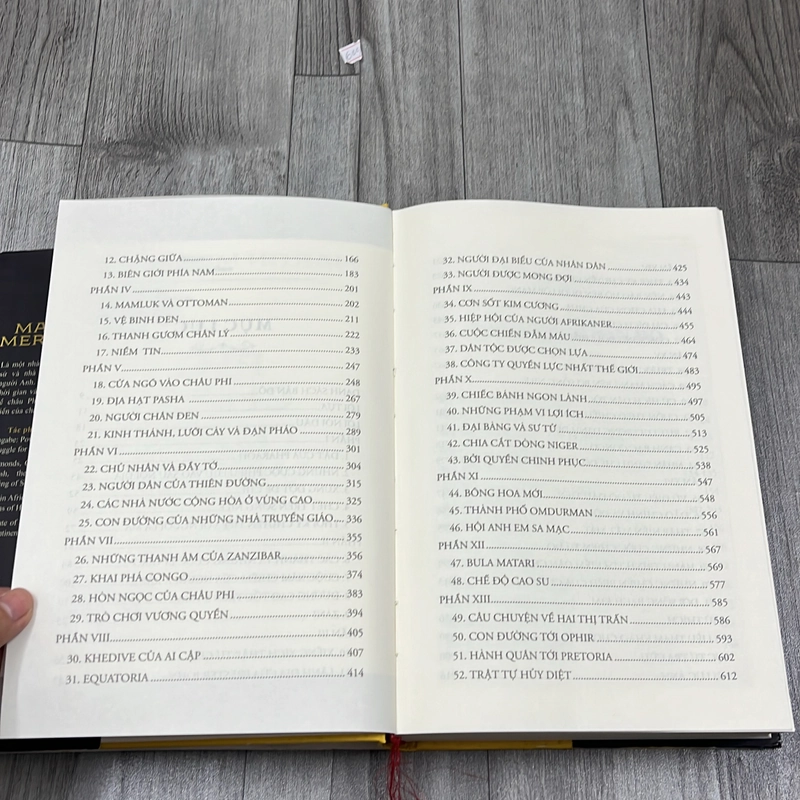 12. CHẶNG GIỮA 166
13. BIÊN GIỚI PHÍA NAM 183
PHẦN IV 201
14. MAMLUK VÀ OTTOMAN 202
15. VỆ BINH ĐEN 211
16. THANH GƯƠM CHÂN LÝ 222
17. NIỀM TIN 233
PHẦN V 247
18. CỬA NGÕ VÀO CHÂU PHI 248
19. ĐỊA HẠT PASHA 267
20. NGƯỜI CHĂN ĐEN 279
21. KINH THÁNH, LƯỠI CÀY VÀ ĐẠN PHÁO 289
PHẦN VI 301
22. CHỦ NHÂN VÀ ĐẦY TỚ 304
23. NGƯỜI DÂN CỦA THIÊN ĐƯỜNG 315
24. CÁC NHÀ NƯỚC CỘNG HÒA Ở VÙNG CAO 325
25. CON ĐƯỜNG CỦA NHỮNG NHÀ TRUYỀN GIÁO 336
PHẦN VII 355
26. NHỮNG THANH ÂM CỦA ZANZIBAR 356
27. KHAI PHÁ CONGO 374
28. HÒN NGỌC CỦA CHÂU PHI 383
29. TRÒ CHƠI VƯƠNG QUYỀN 394
PHẦN VIII 405
30. KHEDIVE CỦA AI CẬP 407
31. EQUATORIA 414
32. NGƯỜI ĐẠI BIỂU CỦA NHÂN DÂN 425
33. NGƯỜI ĐƯỢC MONG ĐỢI 434
PHẦN IX 443
34. CƠN SỐT KIM CƯƠNG 444
35. HIỆP HỘI CỦA NGƯỜI AFRIKANER 455
36. CUỘC CHIẾN ĐẪM MÁU 464
37. DÂN TỘC ĐƯỢC CHỌN LỰA 474
38. CÔNG TY QUYỀN LỰC NHẤT THẾ GIỚI 483
PHẦN X 495
39. CHIẾC BÁNH NGON LÀNH 497
40. NHỮNG PHẠM VI LỢI ÍCH 505
41. ĐẠI BÀNG VÀ SƯ TỬ 513
42. CHIA CẮT DÒNG NIGER 525
43. BỞI QUYỀN CHINH PHỤC 538
PHẦN XI 547
44. BÔNG HOA MỚI 548
45. THÀNH PHỐ OMDURMAN 556
46. HỘI ANH EM SA MẠC 561
PHẦN XII 567
47. BULA MATARI 569
48. CHẾ ĐỘ CAO SU 577
PHẦN XIII 585
49. CÂU CHUYỆN VỀ HAI THỊ TRẤN 586
50. CON ĐƯỜNG TỚI OPHIR 593
51. HÀNH QUÂN TỚI PRETORIA 602
52. TRẬT TỰ HỦY DIỆT 612